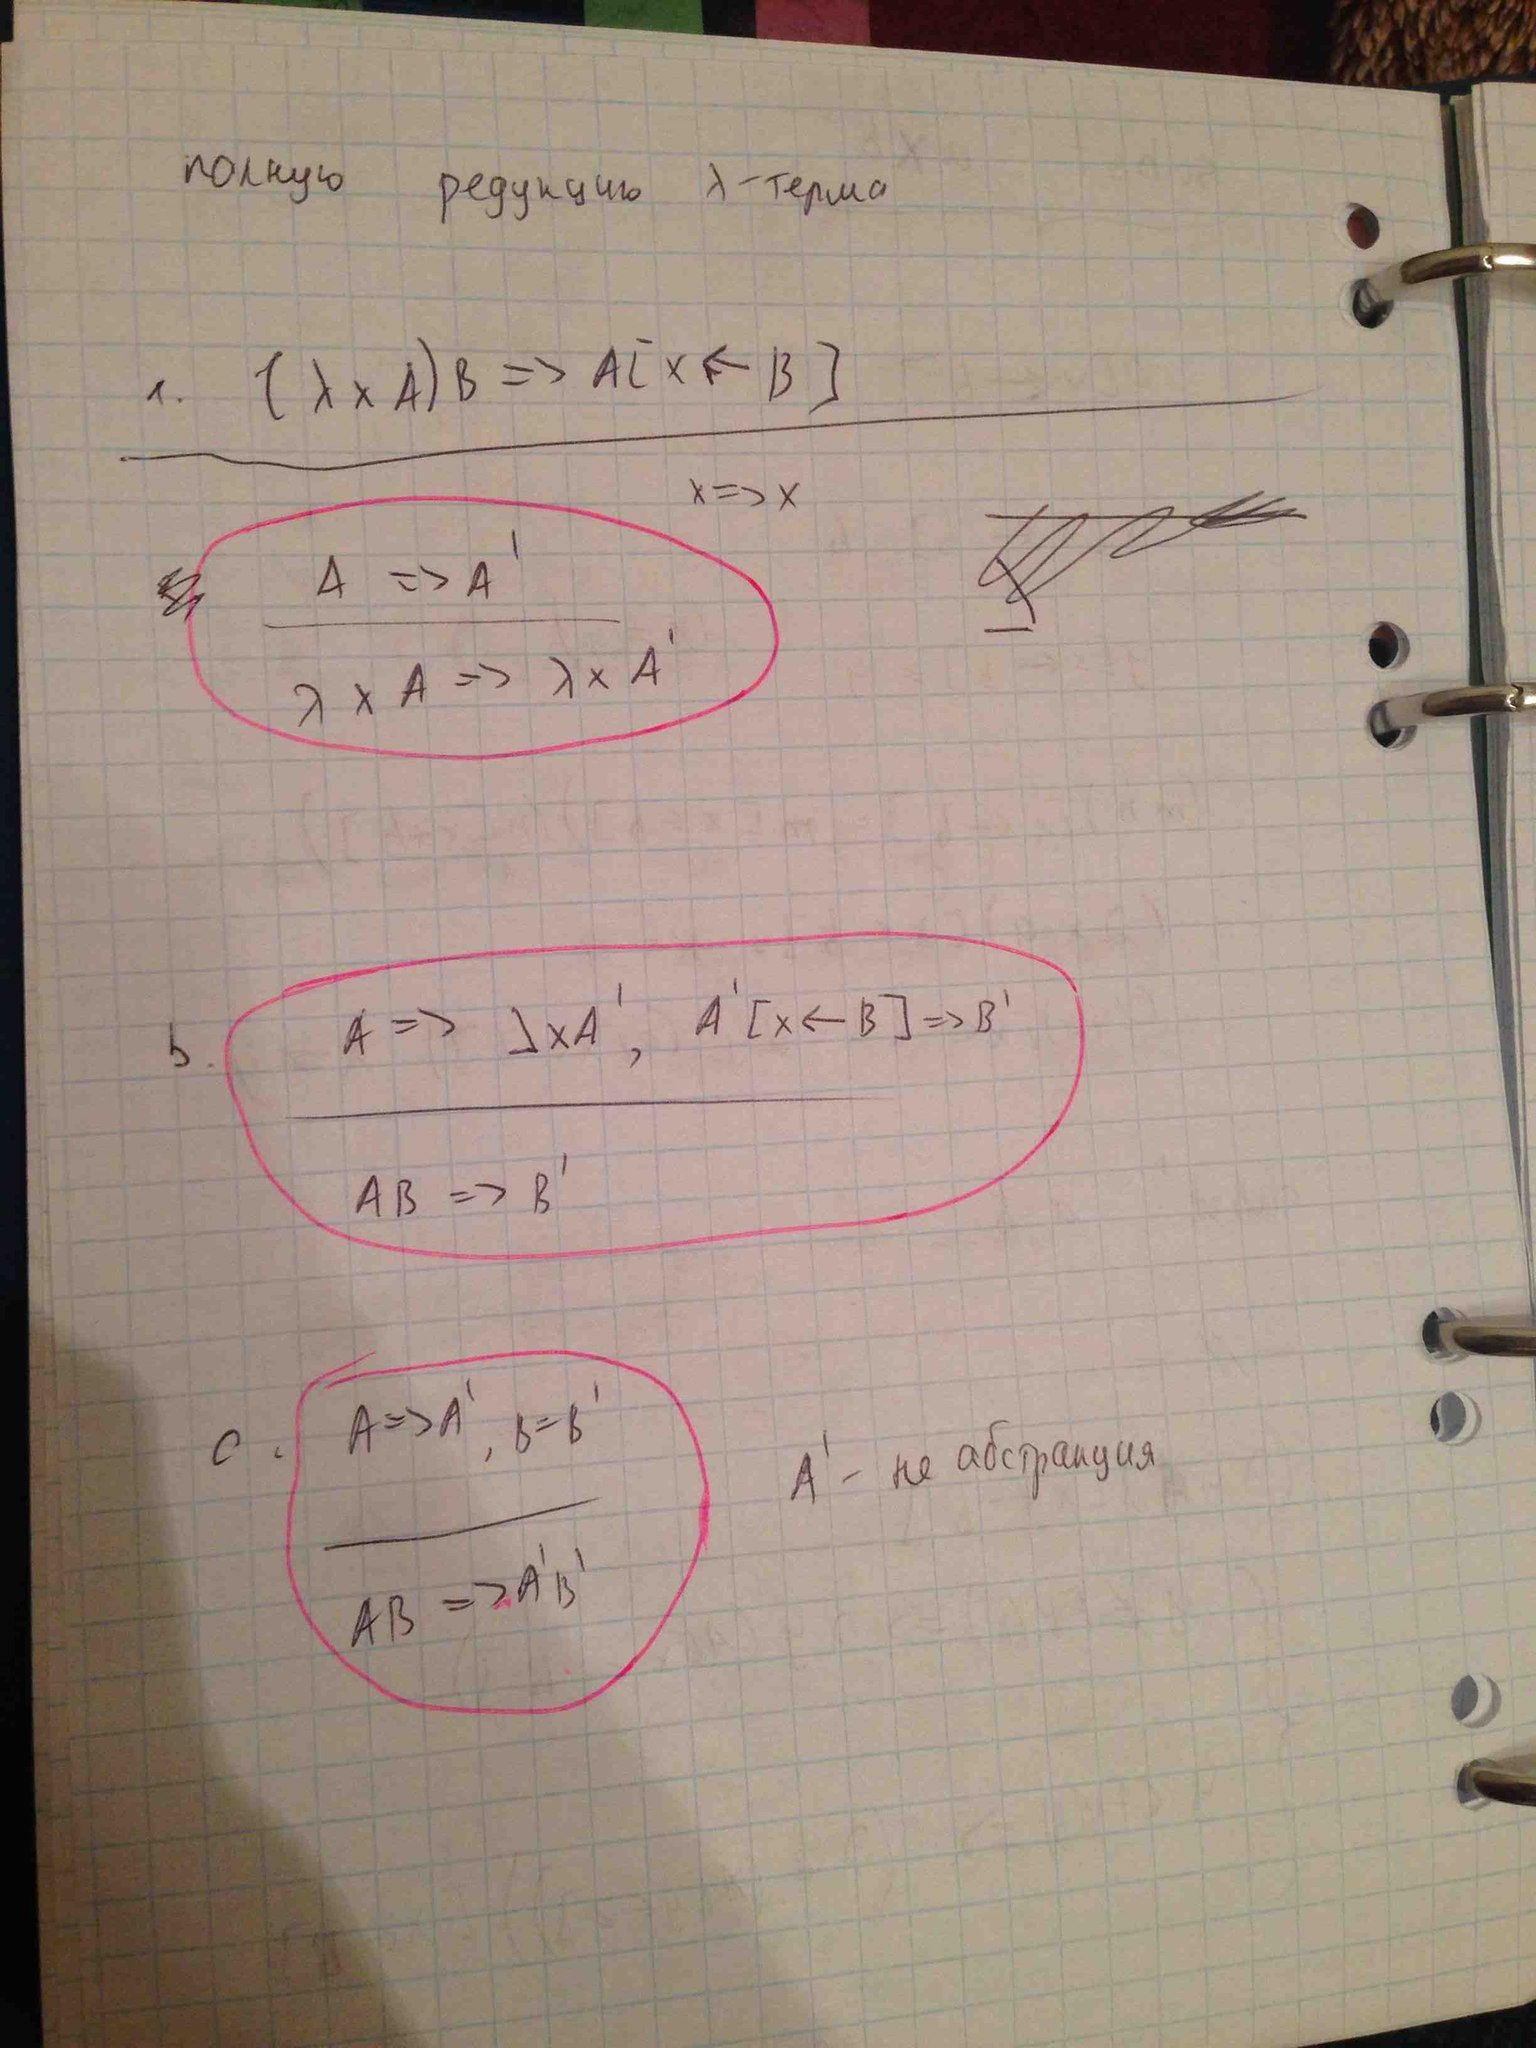 полную редукцию λ-терма
1. (λ x A) B => A[x ← B]
x => x
A => A'
λ x A => λ x A'
b. A => λxA', A'[x ← B] => B'
AB => B'
c. A => A', B = B'
A' - не абстракция
AB => A'B'